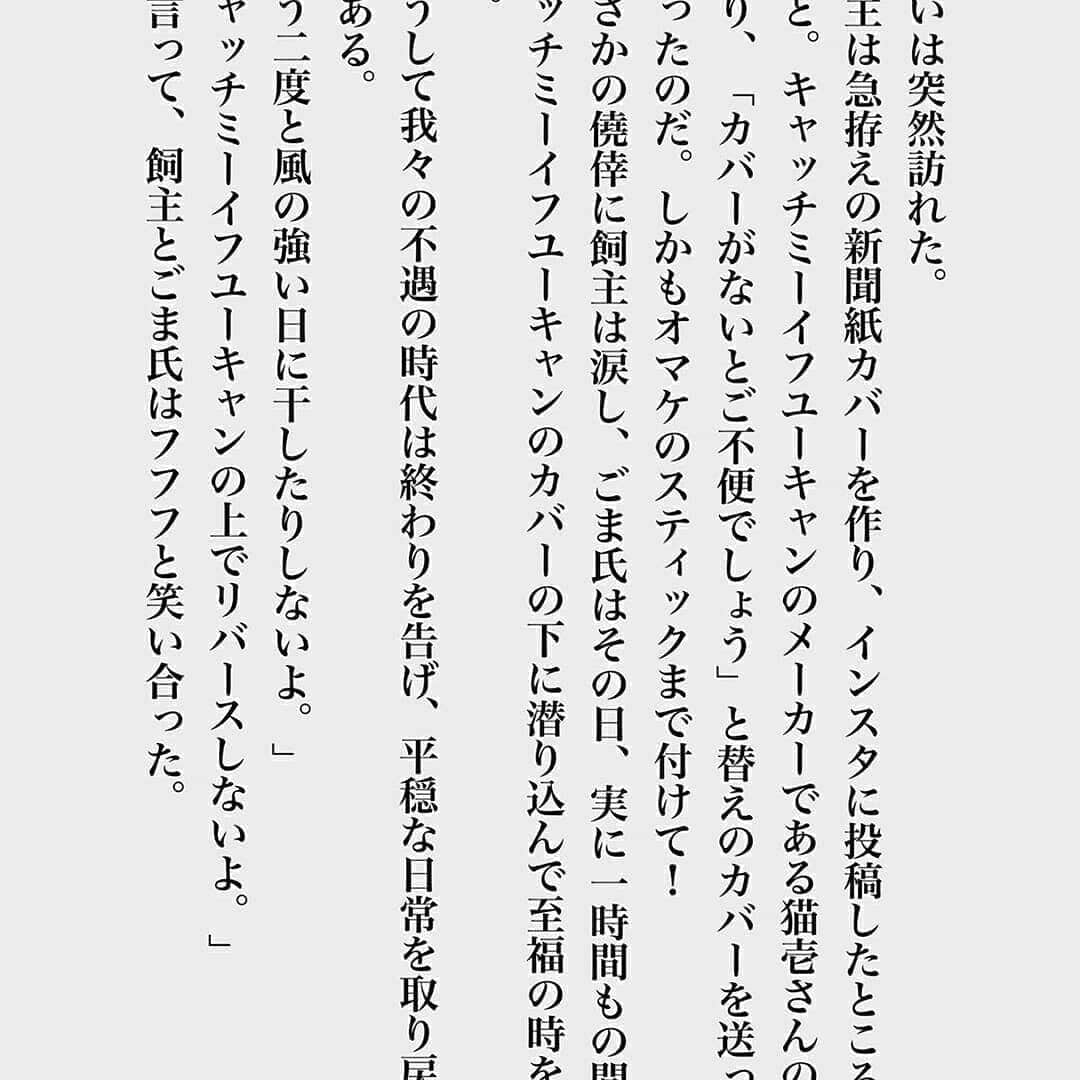 いは突然訪れた。
主は急拵えの新聞紙カバーを作り、インスタに投稿したところ
と。キャッチミーイフユーキャンのメーカーである猫壱さんの
り、「カバーがないとご不便でしょう」と替えのカバーを送っ
ったのだ。しかもオマケのスティックまで付けて！
さかの僥倖に飼主は涙し、ごま氏はその日、実に一時間もの間
ッチミーイフユーキャンのカバーの下に潜り込んで至福の時を
。
うして我々の不遇の時代は終わりを告げ、平穏な日常を取り戻
ある。
う二度と風の強い日に干したりしないよ。」
ャッチミーイフユーキャンの上でリバースしないよ。」
言って、飼主とごま氏はフフフと笑い合った。